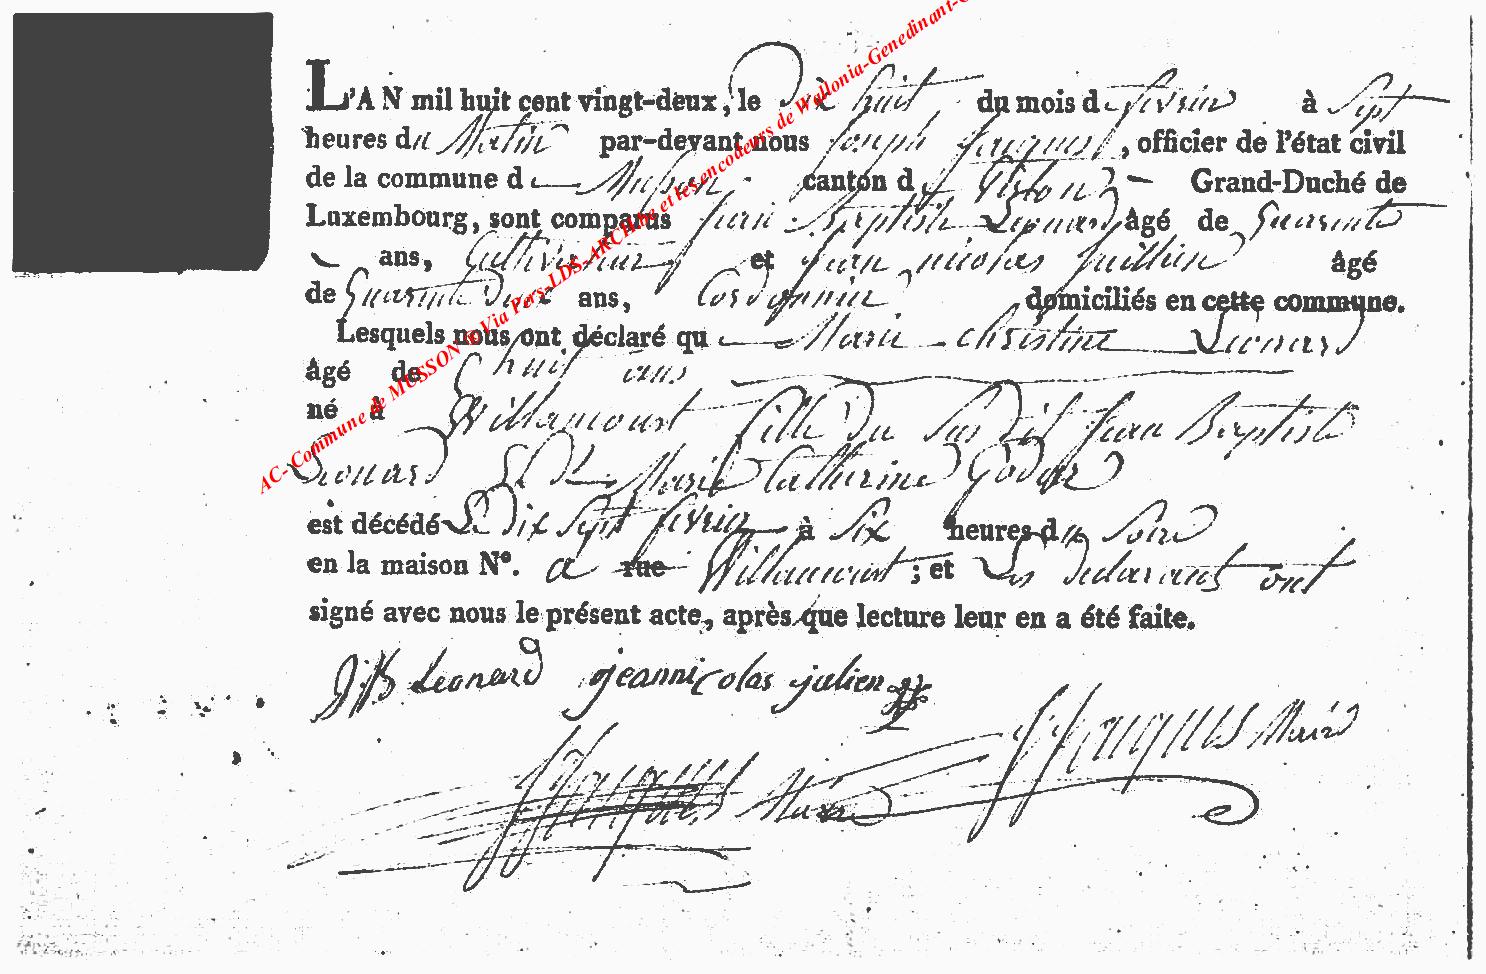 L'AN mil huit cent vingt-deux, le Dix huit du mois de fevrier à Sept
heures du Matin par-devant nous Joseph Jacques, officier de l'état civil
de la commune de Musson canton de Virton Grand-Duché de
Luxembourg, sont comparus Jean Baptiste Leonard âgé de Quarante
ans, Cultivateur et Jean nicolas Juillien âgé
de Quarante Deux ans, Cordonnier domiciliés en cette commune.
Lesquels nous ont déclaré que Marie Christine Leonard
âgé de huit ans
né à Willancourt fille du Sus dit Jean Baptiste
Leonard Et de Marie Catherine Godar
est décédé Le Dix Sept fevrier à Six heures du Soire
en la maison N°. a rue Willancourt ; et Les declarants ont
signé avec nous le présent acte, après que lecture leur en a été faite.
JB Leonard jean nicolas julien
J Jacques Maire
J Jacques Maire
AC- Commune de MUSSON © Via Pers-LDS-ARCH.be et les encodeurs de Wallonia-Genedinant-